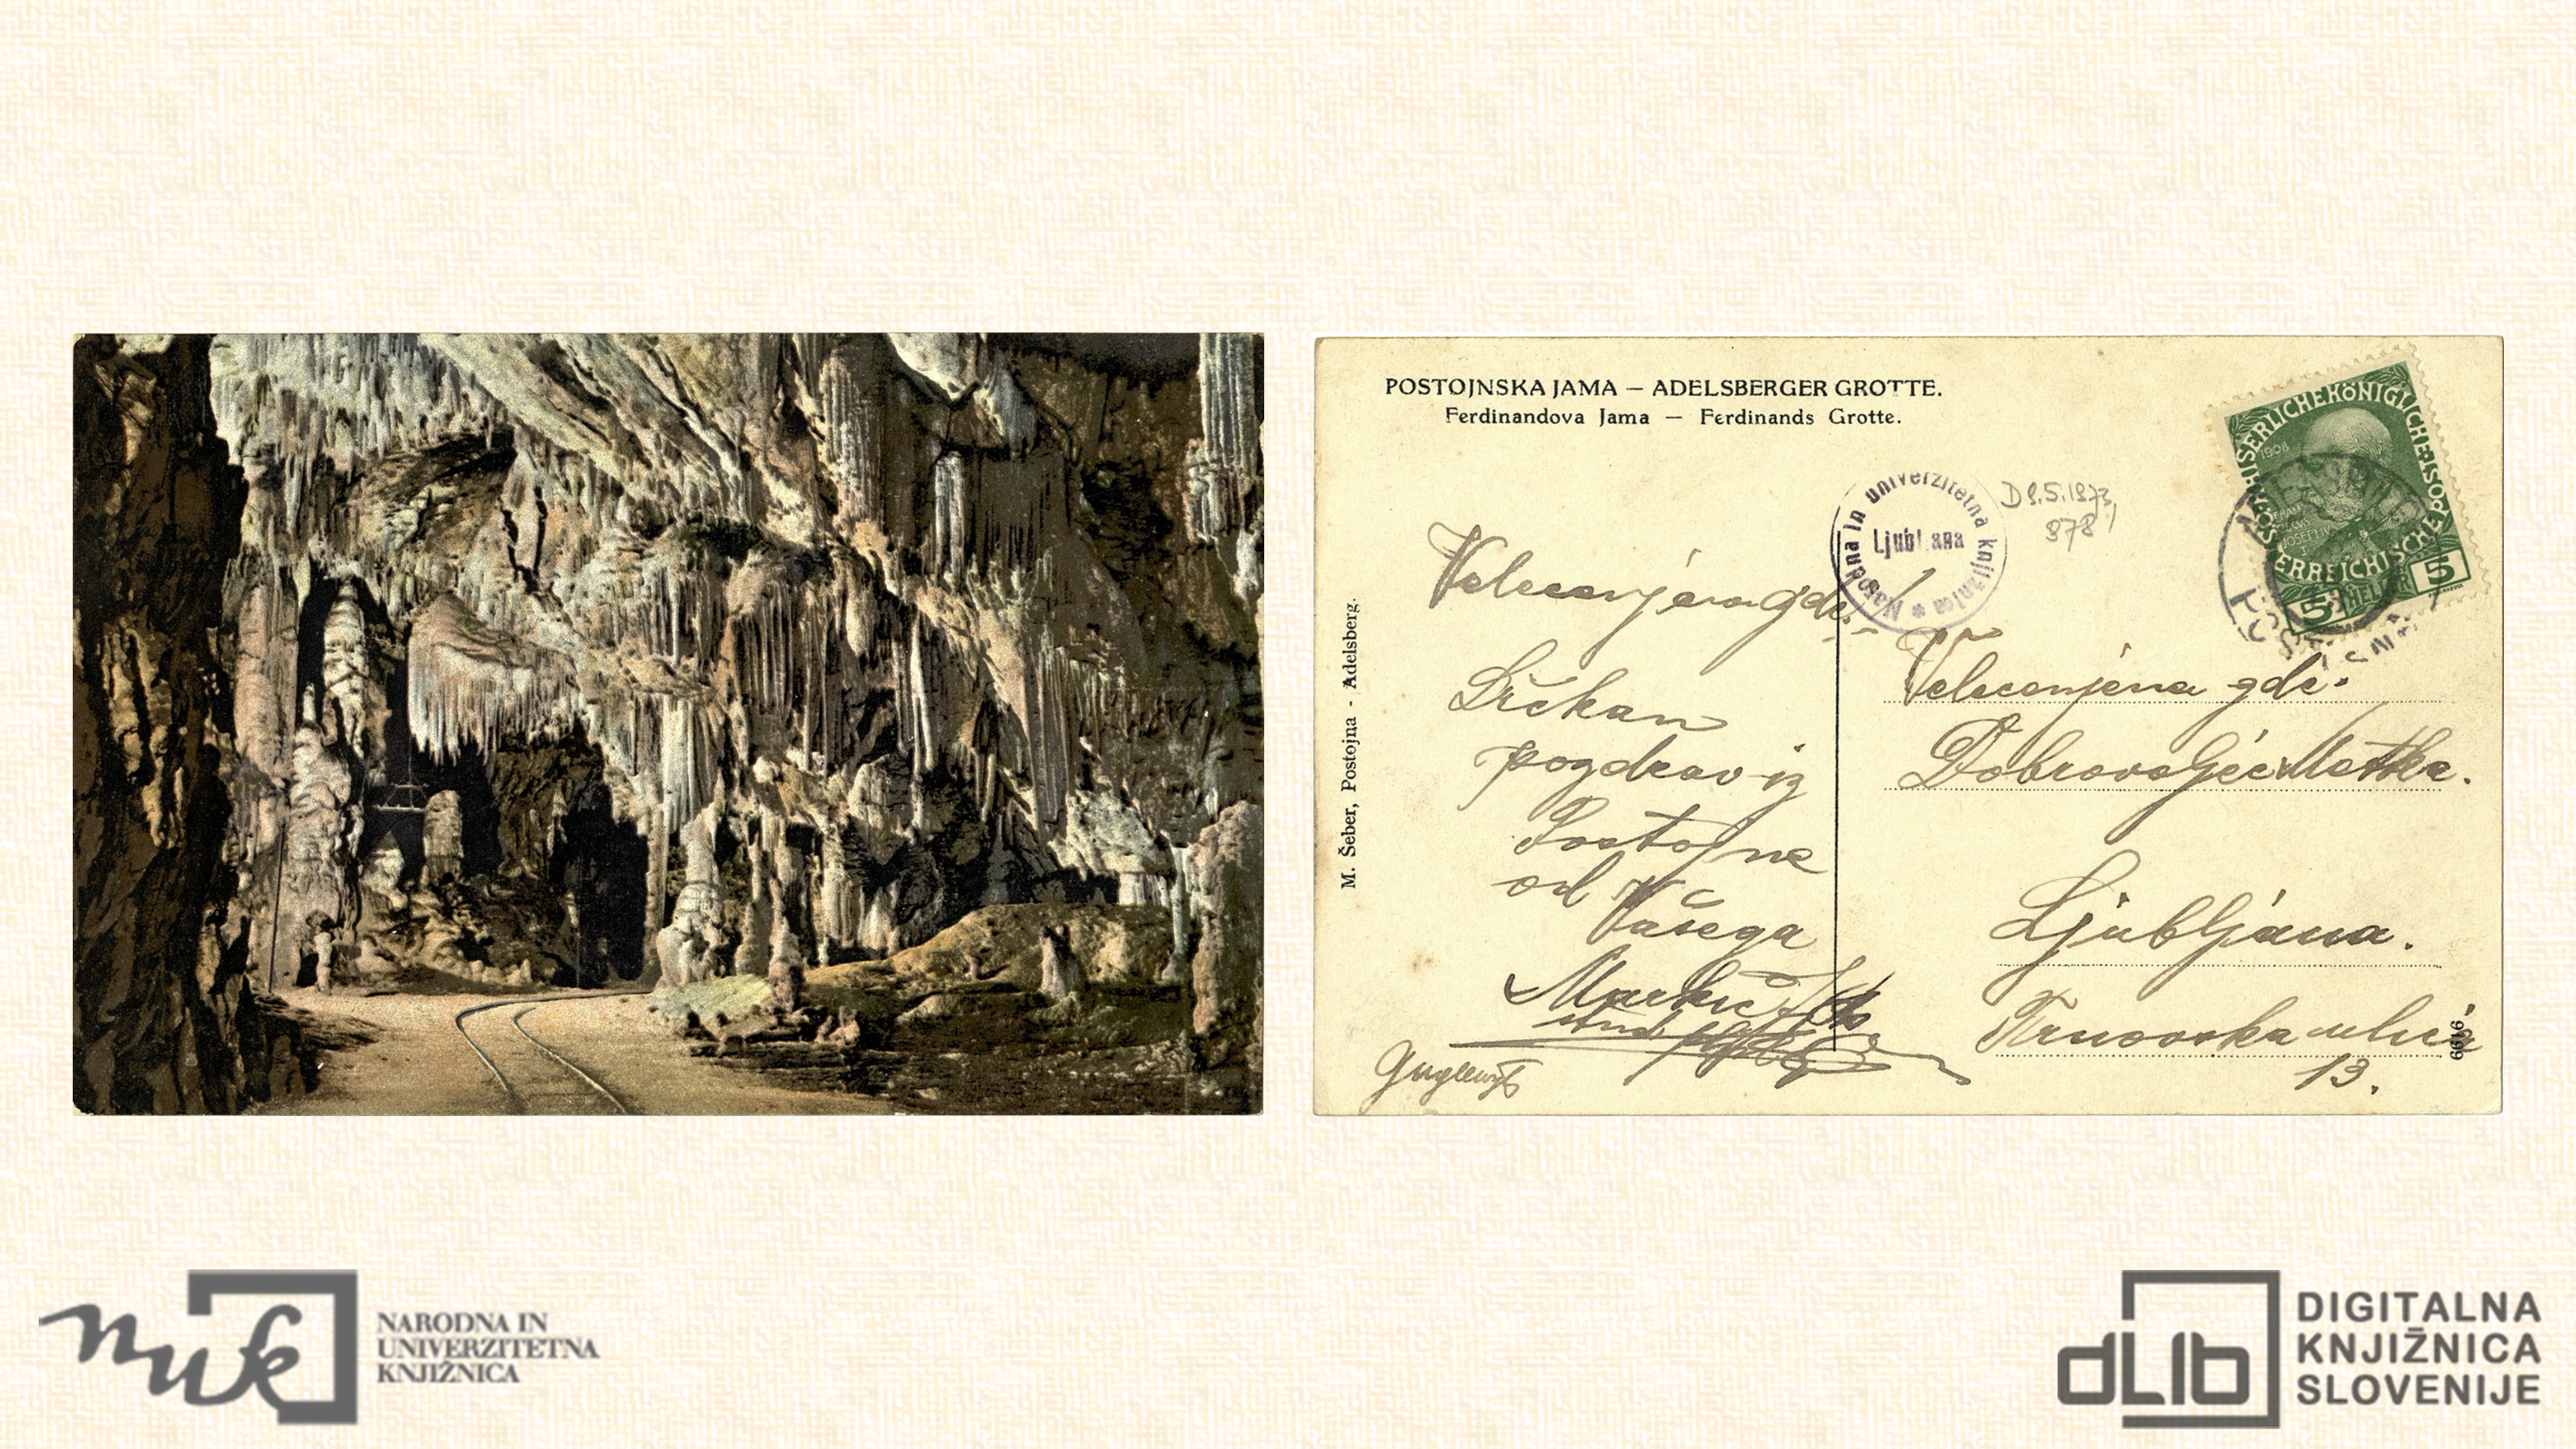 POSTOJNSKA JAMA — ADELSBERGER GROTTE.
Ferdinandova Jama — Ferdinands Grotte.
M. Šeber, Postojna - Adelsberg.
Narodna in univerzitetna knjižnica *
Ljubljana
D 9.5.1973,
878
KAISERLICHE KÖNIGLICHE
ÖSTERREICHISCHE POST
1908
5 HELLER 5
Velecenjena gdč.
Srčkan
pogdrav iz
Postojne
od
Vašega
Markič
Velecenjena gdč.
Dobrovoljec Metka.
Ljubljana.
Trnovska ulica
13.
6616
nuk
NARODNA IN
UNIVERZITETNA
KNJIŽNICA
dLib
DIGITALNA
KNJIŽNICA
SLOVENIJE